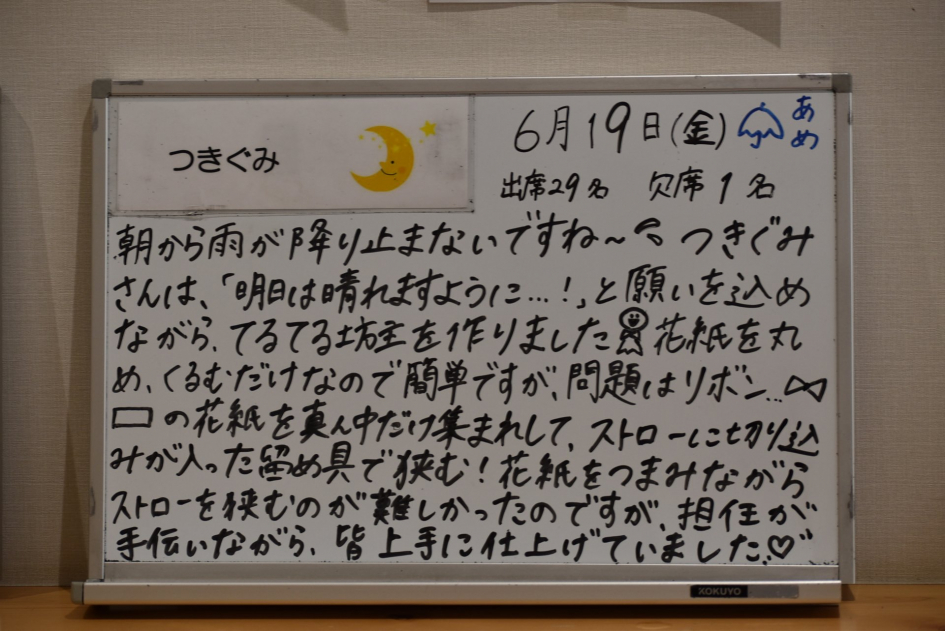 つきぐみ
6月19日(金) あめ
出席29名 欠席1名
朝から雨が降り止まないですね～ つきぐみ
さんは、「明日は晴れますように…!」と願いを込め
ながら、てるてる坊主を作りました 花紙を丸
め、くるむだけなので簡単ですが、問題はリボン…
の花紙を真ん中だけ集まれして、ストローに切り込
みが入った留め具で挟む!花紙をつまみながら
ストローを挟むのが難しかったのですが、担任が
手伝いながら、皆上手に仕上げていました♡
KOKUYO